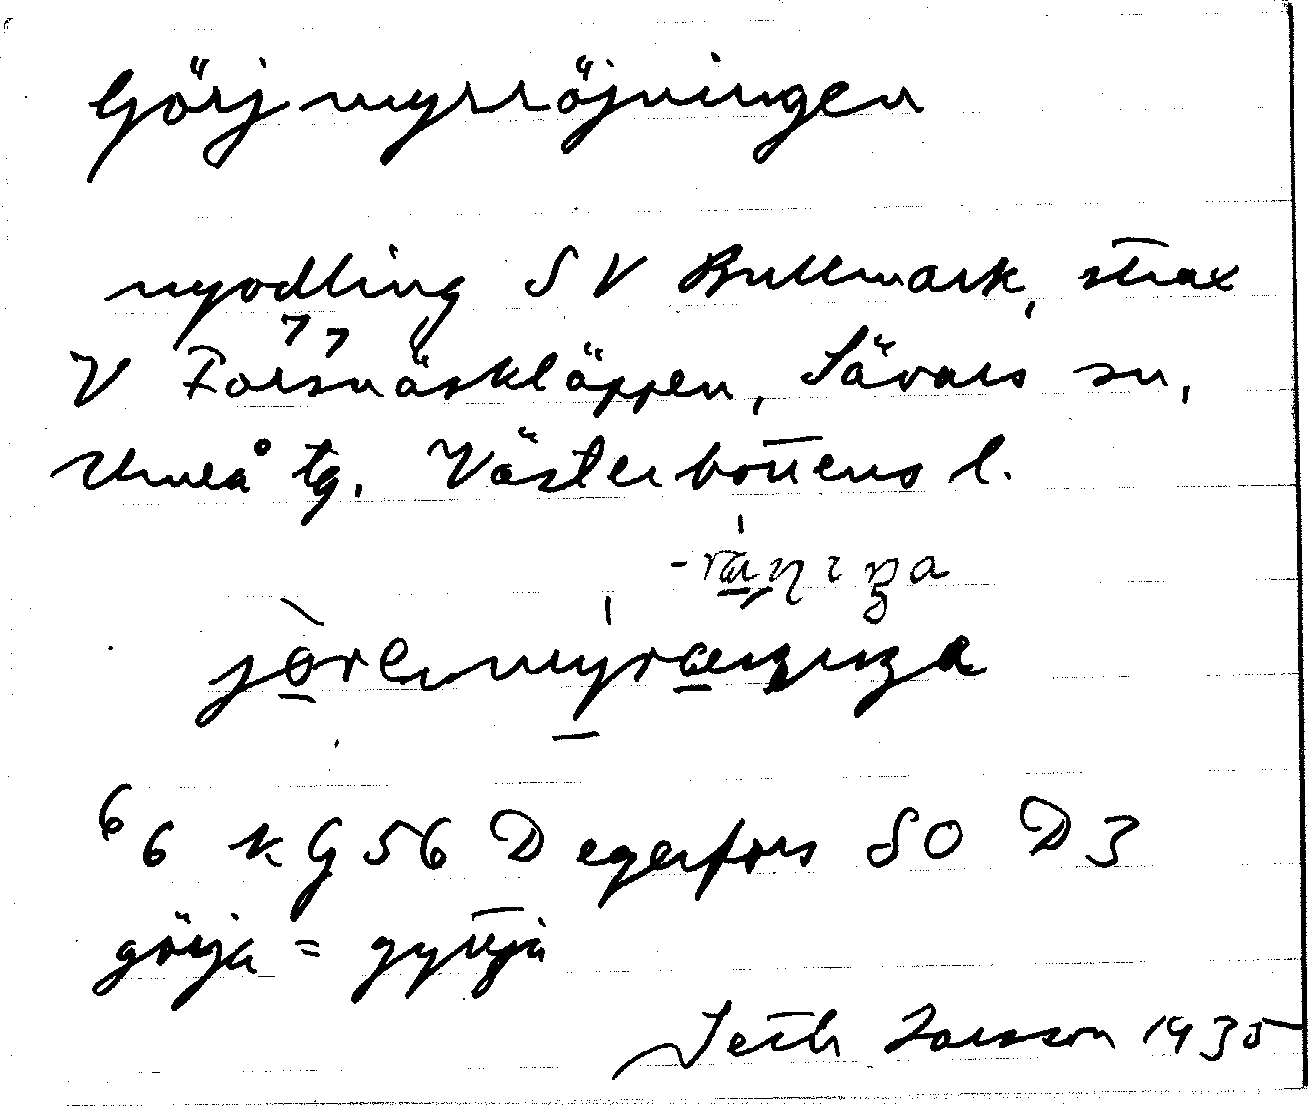 Görjmyrröjningen
nyodling SV Bullmark, strax
V Forsnäskläppen, Sävars sn,
Umeå tg. Västerbottens l.
66 KG56 Degerfors SO D3
görja = gyttja
Seth Larsson 1935